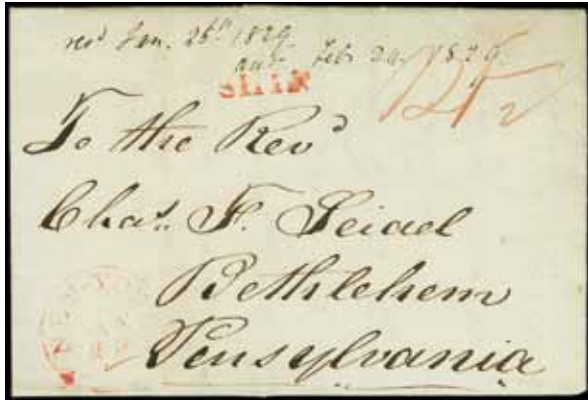 recd Jan. 25th 1829.
ans. Feb 24. 1829.
SHIP
To the Revd
Chas. F. Seidel
Bethlehem
Pensylvania